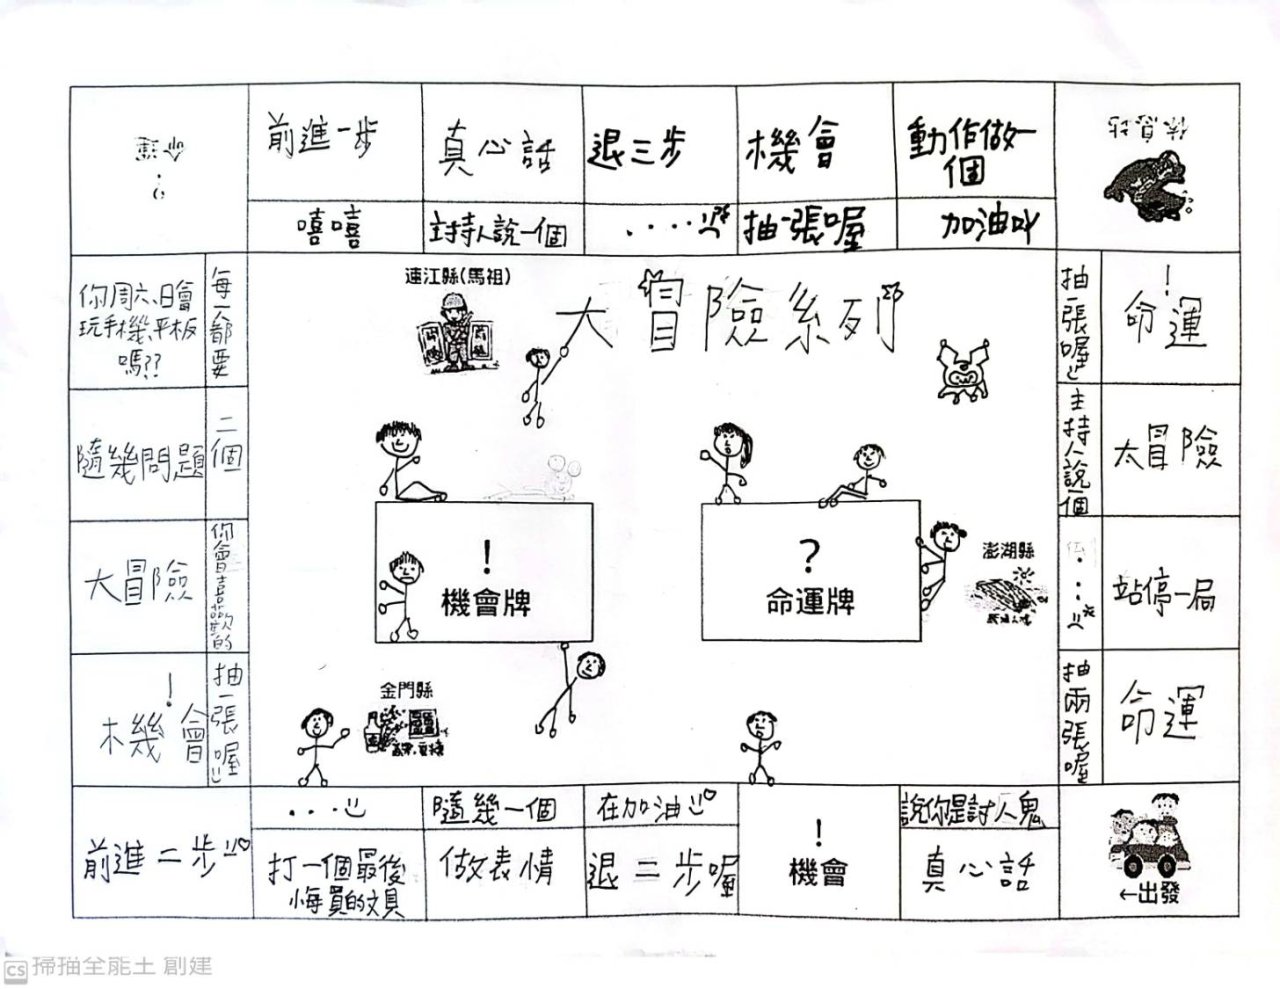 命運
?
前進一步
嘻嘻
真心話
主持人說一個
退三步
....
機會
抽一張喔
動作做一個
加油叫
休息站
你周六、日會
玩手機、平板
嗎??
每一都要
隨幾問題
二個
大冒險
你會喜歡的
!
機會
抽一張喔
連江縣(馬祖)
大冒險系列
!
機會牌
?
命運牌
澎湖縣
金門縣
抽一張喔
!
命運
主持人說一個
太冒險
...
站停一局
抽兩張喔
命運
前進二步
...
打一個最後
悔買的文具
隨幾一個
做表情
在加油
退二步喔
!
機會
說你是討人鬼
真心話
←出發
CS 掃描全能王 創建